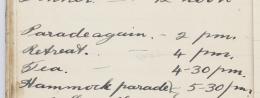 Dinner. - 12 noon
Parade again. - 2 pm.
Retreat. . 4 pm.
Tea. 4-30 pm.
Hammock parade, 5-30 pm.